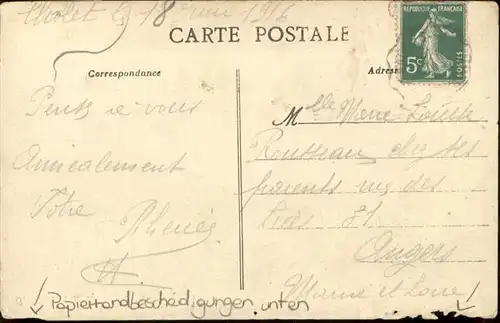 Cholet le 18 Juin 1916
CARTE POSTALE
RÉPUBLIQUE FRANÇAISE
5c
POSTES
Correspondance
Adresse
à vous
Amicalement
Votre
Mlle Marie Louise
Rousseau chez ses
parents rue des
Angers
Maine et Loire
Papierrandbeschädigungen unten